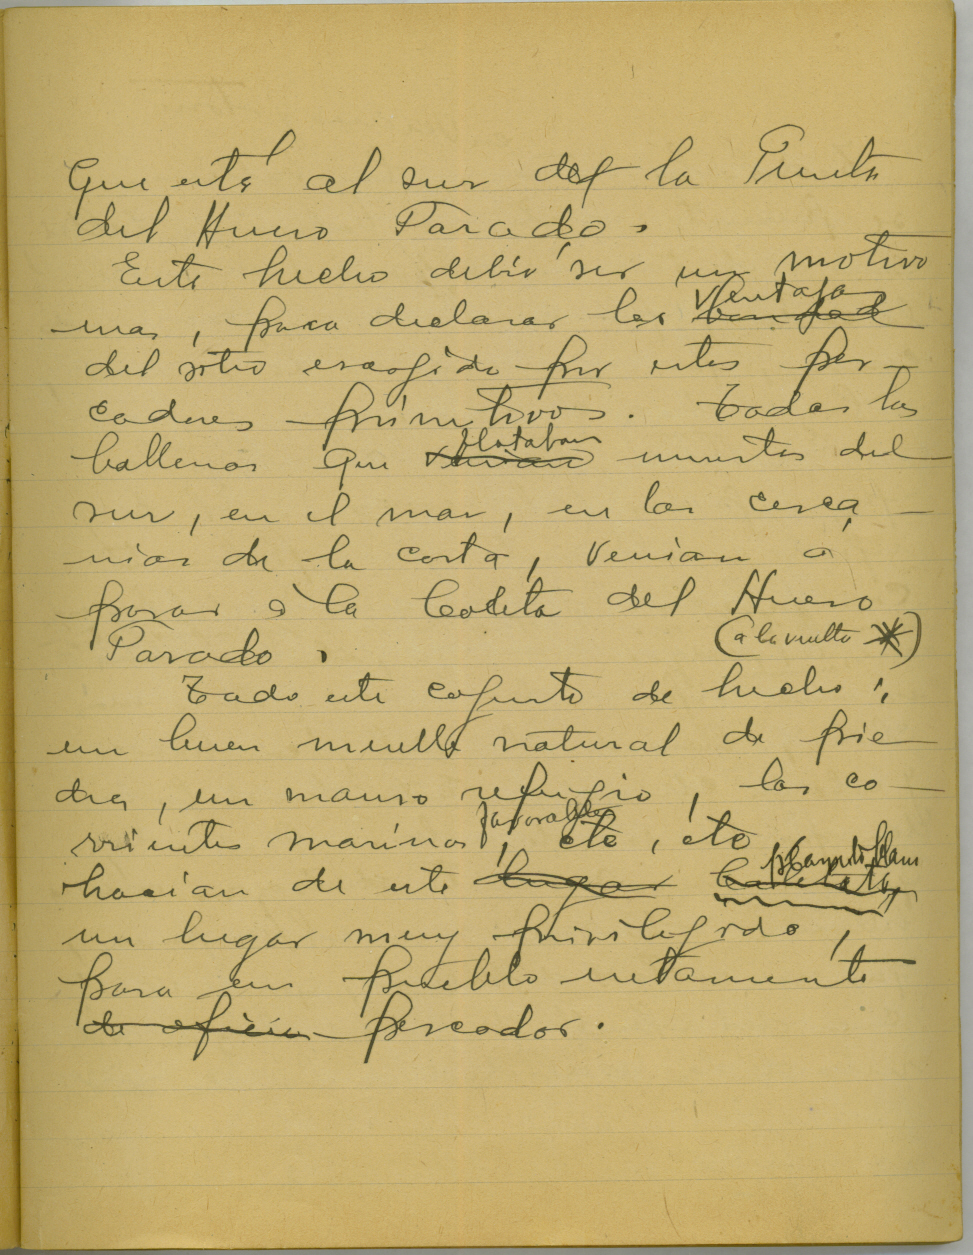 que está al sur de la Punta
del Hueso Parado.
Este hecho debió ser un motivo
mas, para declarar las ventajas
del sitio escogido por estos pes-
cadores primitivos. Todas las
ballenas que flotaban muertas del
sur, en el mar, en las cerca-
nias de la costa, venian á
parar á la Caleta del Hueso
Parado. (a la vuelta *)
Todo este cojunto de hecho;
un buen muelle natural de pie-
dra, un manso refugio, las co-
rrientes marinas favorables, etc, etc
hacian de este lugar
un lugar muy privilegido,
para un pueblo netamente
de oficio pescador.